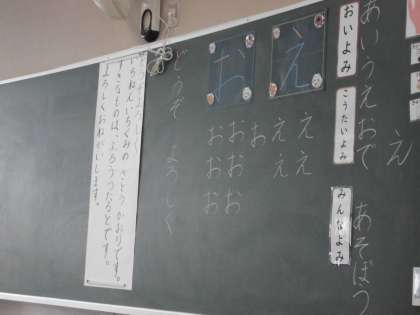 あいうえおで あそぼう
おいよみ
こうたいよみ
みんなよみ
え
え
ええ
ええ
お
お
おおお
おおお
どうぞ よろしく
いちねんいちくみの さとう かおりです。
すきなものは、ぶろうつたるとです。
よろしくおねがいします。